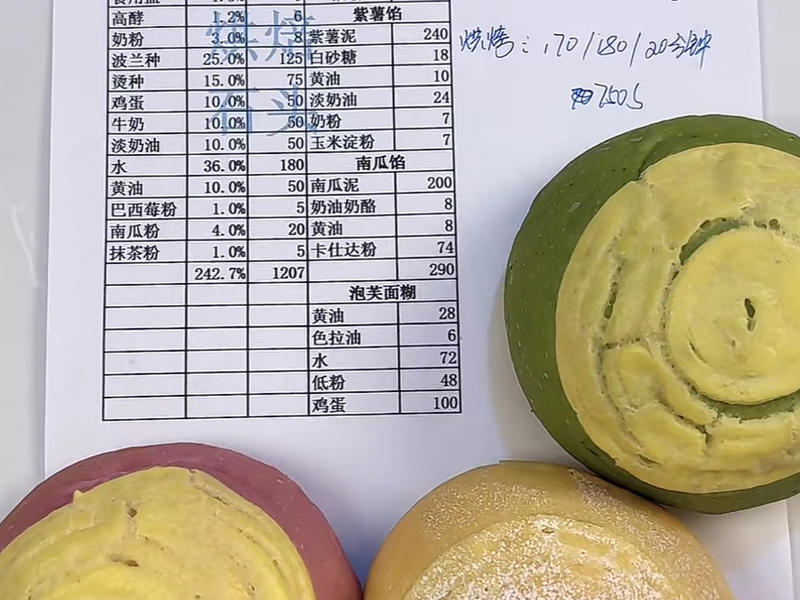 高酵 1.2% 6 紫薯馅
奶粉 3.0% 8 紫薯泥 240
波兰种 25.0% 125 白砂糖 18
烫种 15.0% 75 黄油 10
鸡蛋 10.0% 50 淡奶油 24
牛奶 10.0% 50 奶粉 7
淡奶油 10.0% 50 玉米淀粉 7
水 36.0% 180 南瓜馅
黄油 10.0% 50 南瓜泥 200
巴西莓粉 1.0% 5 奶油奶酪 8
南瓜粉 4.0% 20 黄油 8
抹茶粉 1.0% 5 卡仕达粉 74
242.7% 1207 290
泡芙面糊
黄油 28
色拉油 6
水 72
低粉 48
鸡蛋 100
烘焙
石头
烘烤:170/180/20分钟
750S